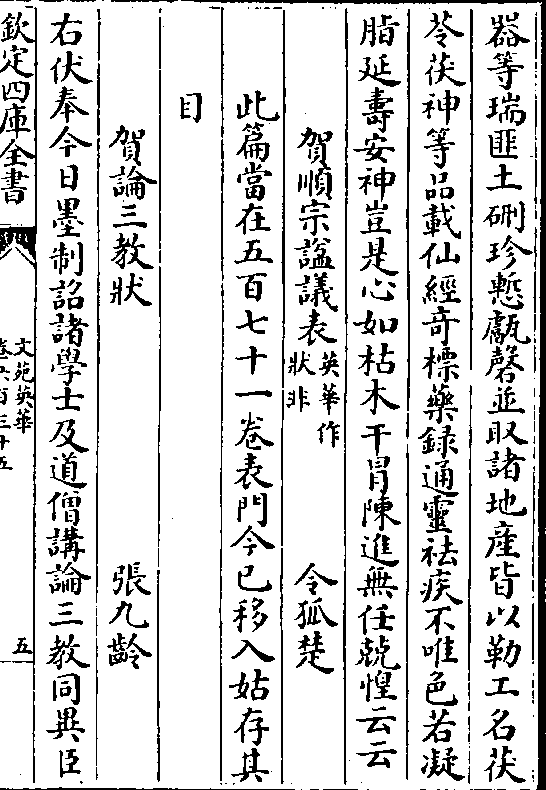 器等瑞匪土硎珍慙甗磬並取諸地産皆以勒工名茯
苓茯神等品載仙經奇標藥録通靈祛疾不唯色若凝
脂延壽安神豈是心如枯木干冒陳進無任兢惶云云
賀順宗諡議表英華作狀非 令狐楚
此篇當在五百七十一卷表門今已移入姑存其
目
賀論三教狀 張九齡
右伏奉今日墨制詔諸學士及道僧講論三教同異臣
欽定四庫全書 文苑英華 卷六百三十五 五